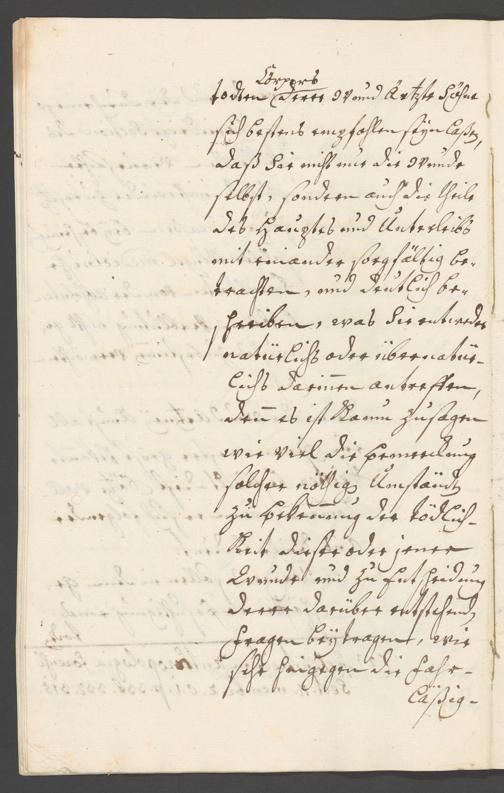 Cörpers
todten derer Wund Ärtzte Söhne
sich bestens empfohlen seyn laßen,
daß sie nicht nur die Wunde
selbst, sondern auch die theile
des Hauptes und Unterleibs
mit einander sorgfältig be-
trachten, und deutlich be-
schreiben, was sie entweder
natürlichs oder übernatür-
lichs darinnen antreffen,
denn es ist kaum zu sagen
wie viel die bemerckung
solcher nöthig Umständ
zu bekennung der tödlich-
keit dieser oder jener
Wunde und zu Entscheidung
derer darüber entstehend
Fragen beÿtragen, wie
sehr hingegen die Fahr-
läßig-